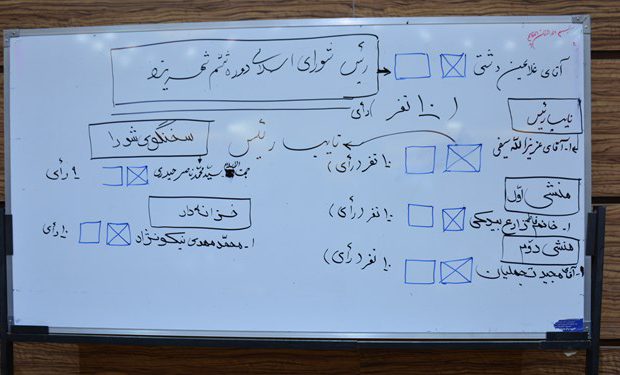 رئیس شورای اسلامی دوره ششم شهر یزد
آقای غلامعلی دشتی
۱۰ نفر (رأی)
نایب رئیس
نایب رئیس
۱- آقای عزیزالله سیفی
۱۰ نفر (رأی)
سخنگوی شورا
سید محمد ناصر حیدری
۹ رأی
منشی اول
۱- خانم زارع بیدکی
۱۰ نفر (رأی)
خزانه دار
۱- محمد مهدی نیکونژاد
۱۰ رأی
منشی دوم
۱- آقای مجید تجملیان
۱۰ نفر (رأی)